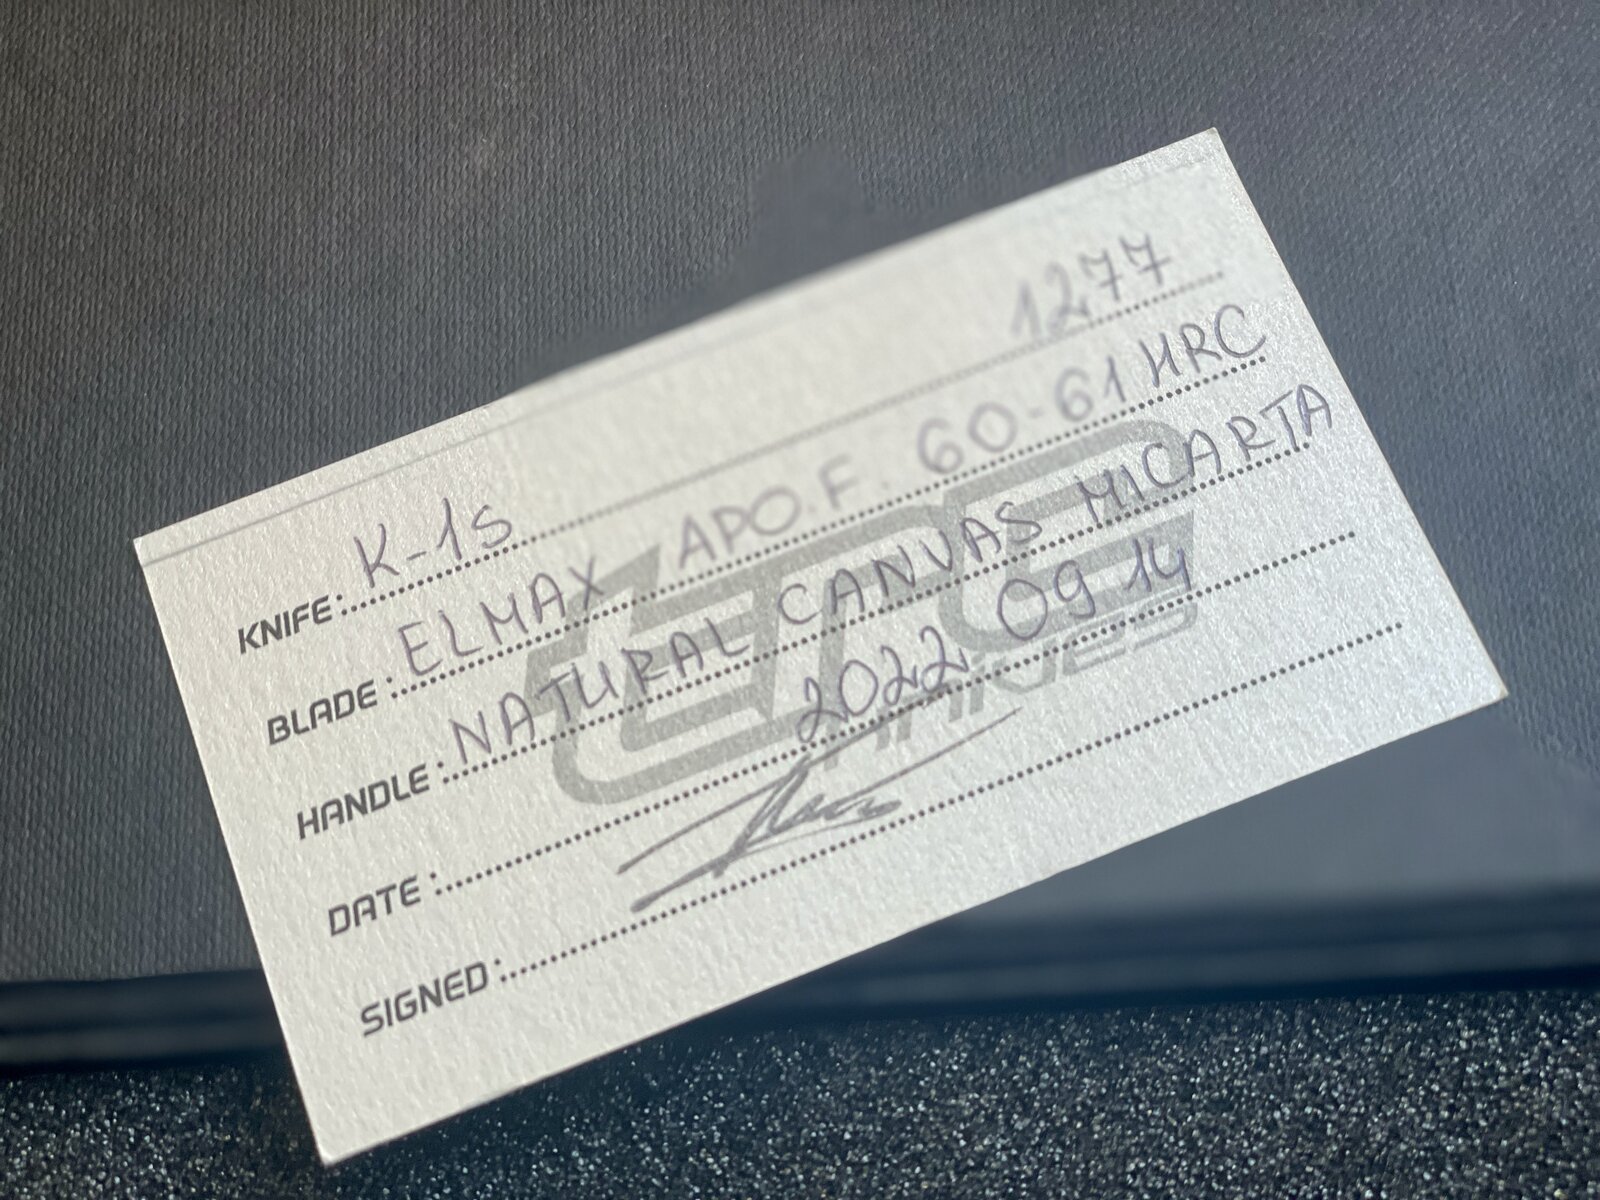 KNIFE: K-1s 1277
BLADE: ELMAX APO.F. 60-61 HRC
HANDLE: NATURAL CANVAS MICARTA
DATE: 2022 09 14
SIGNED: